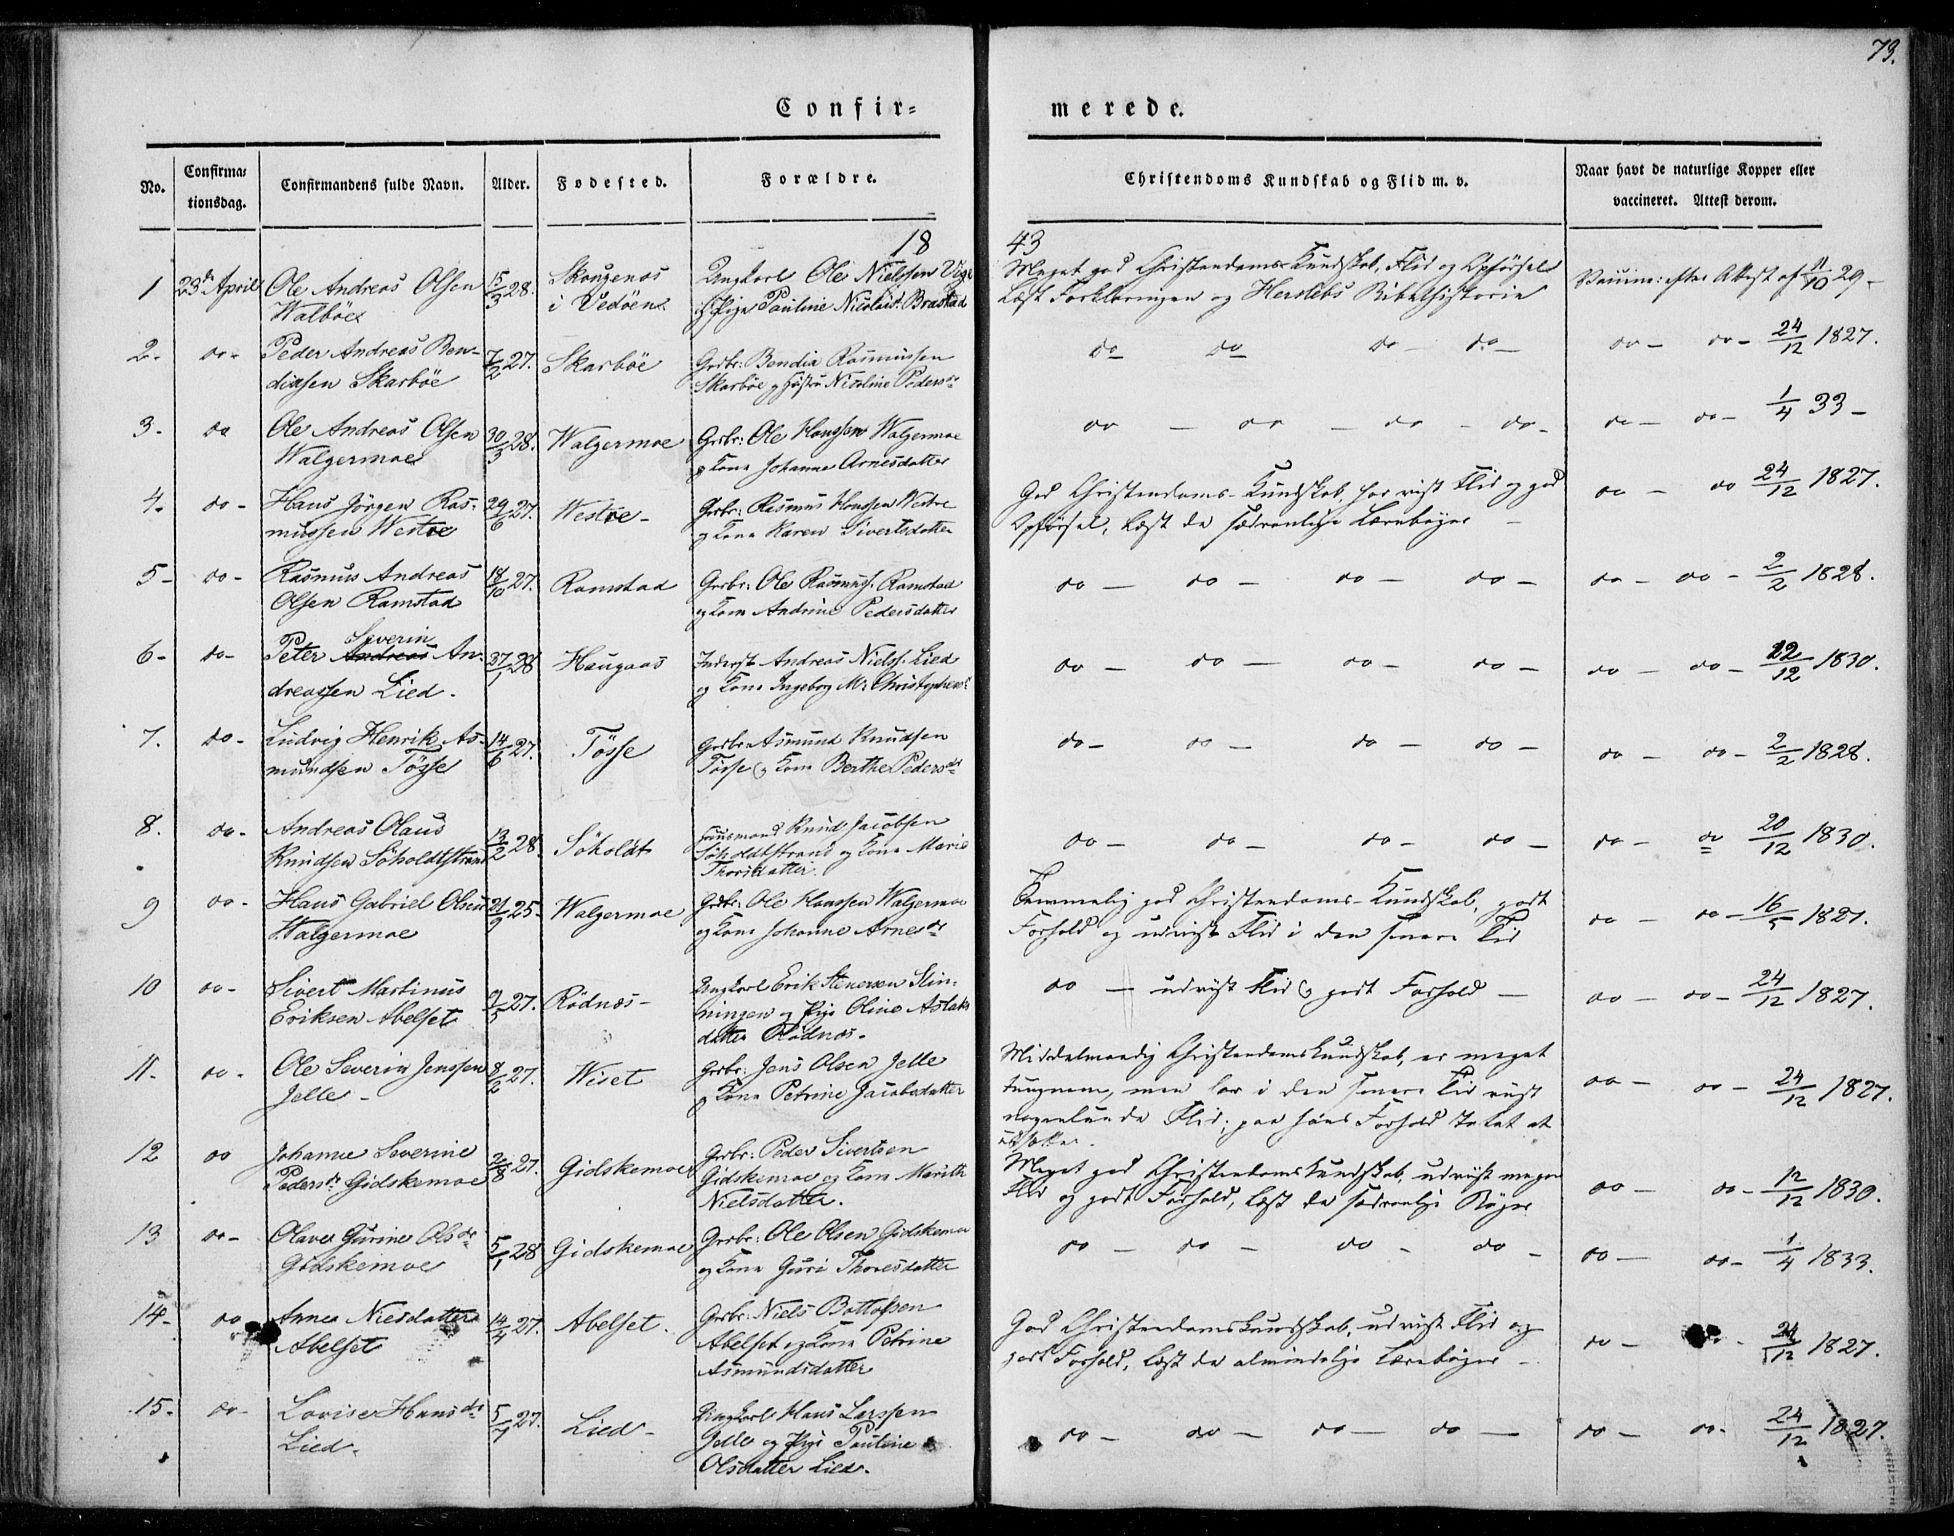 73.
Confir=
merede.
No.
Confirma=
tionsdag.
Confirmandens fulde Navn.
Alder.
Fødested.
Forældre.
Christendoms Kundskab og Flid m. v.
Naar havt de naturlige Kopper eller
vaccineret. Attest derom.
18
43
1 23de April Ole Andreas Olsen 15/3 28. Ungkarl Ole Nielssen
Walbøe i Vedøen Pige Pauline
Meget god Christendoms Kundskab, Flid og Opførsel
Læst Forklaringen og Herslebs Bibelhistorie
Vaccine: efter Attest af 29-
2- do- Peder Andreas Ben- 7/2 27. Skarbøe Grbr: Bendix Rasmussen
dixsen Skarbøe Skarbøe og Hustru Nicoline Pedersdr
do do do- do- do- do- 24/12 1827.
3- do Ole Andreas Olsen 30/3 28. Walgermoe Grbr: Ole Hanssen Walgermoe
Walgermoe og Kone Johanne Arnesdatter
do - do - do - do- do- do- 1/4 33-
4- do- Hans Jörgen Ras- 29/6 27. Westre- Grbr: Rasmus Hanssen Westre
mussen Westre og Kone Karen Sivertsdatter
God Christendoms-Kundskab, har viist Flid og god
Opførsel, læst de sædvanlige Lærebøger -
do - do 24/12 1827.
5- do- Rasmus Andreas 18/10 27. Ramstad Grbr: Ole Rasmuss. Ramstad
Olsen Ramstad og Kone Andrine Pedersdatter
do - do - do - do - do - do - 2/2 1828.
Severin
6- do- Peter Andreas An- 27/1 28 Haugaas Inderst Andreas Niels. Lied
dreassen Lied. og Kone Ingeborg M. Christophers
do - do - do - do - do - do - 22/12 1830.
7. do- Ludvig Henrik As- 14/6 27. Tösse Grbr: Asmund Knudsen
mundsen Tösse Tösse og Kone Berthe Pedersdr
do- do - do - do - do - do - 2/2 1828.
8. do- Andreas Olaus 13/2 28. Söholdt Huusmand Knud Jacobsen
Knudsen Söholdtstrand Söholdtstrand og Kone Marie
Thorisdatter.
do - do - do - do - do - do 20/12 1830.
9 do- Hans Gabriel Olsen 25- Walgermoe Grbr: Ole Hanssen Walgermoe
Walgermoe og Kone Johanne Arnesdr
Temmelig god Christendoms-Kundskab, godt
Forhold og udviist Flid i den senere Tid
do - do- 16/5 1827.
10 do- Sivert Martinus 27. Rödnæs- Ungkarl Erik Stenersen Slin-
Eriksen Abelset ningen og Pige Oline Aslaks
datter Rödnæs-
do - udviist Flid og godt Forhold - do - do- 24/12 1827.
11- do- Ole Severin Jenssen 8/2 27. Wiset Grbr: Jens Olsen Jelle
Jelle - og Kone Petrine Jacobsdatter
Middelmaadig Christendomskundskab, er meget
tungnem, men har i den senere Tid viist
nogenlunde Flid; paa hans Forhold Intet at
udsætte.
do - do - 24/12 1827.
12 do Johanne Severine 27. Gidskemoe Grbr: Peder Sivertsen
Pedersdr Gidskemoe Gidskemoe og Kone Marith
Nielsdatter.
Meget god Christendomskundskab, udviist megen
Flid og godt Forhold, læst de sædvanlige Bøger
do - do- 12/12 1830.
13 do- Olave Gurine Olsdr 5/1 28 Gidskemoe Grbr: Ole Olsen Gidskemoe
Gidskemoe og Kone Guri Thoresdatter
do - do - do - do - do - do- 1/4 1833.
14- do Anna Nielsdatter 14/4 27. Abelset. Grbr: Niels Bottolfsen
Abelset Abelset og Kone Petrine
Asmundsdatter
God Christendomskundskab, udviist Flid og
godt Forhold, læst de almindelige Lærebøger -
do - do- 24/12 1827.
15- do- Lovise Hansdr 5/7 27. Lied- Ungkarl Hans Larssen
Lied- Jelle og Pige Pauline
Olsdatter Lied-
do - do - do - do - do - do- 24/12 1827.